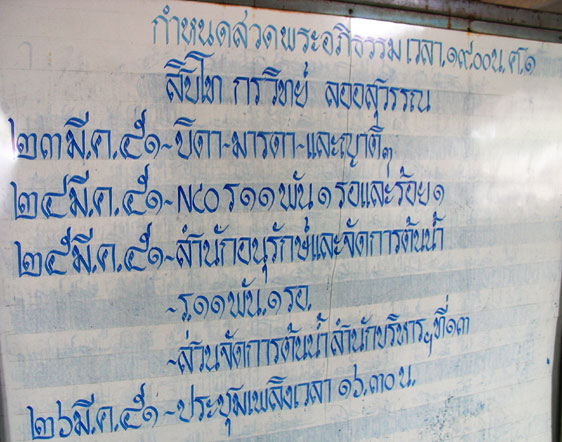 กำหนดสวดพระอภิธรรมเวลา.๑๙.๐๐น.ศ.๑
สิบโท กรวิทย์ ลออสุวรรณ
๒๓มี.ค.๕๑-บิดา-มารดา-และญาติๆ
๒๔มี.ค.๕๑-นสอ ร๑๑ พัน ๑ รอและร้อย ๑
๒๕มี.ค.๕๑-สำนักอนุรักษ์และจัดการต้นน้ำ
-ร.๑๑พัน.๑รอ.
-ส่วนจัดการต้นน้ำ สำนักบริหารฯที่๑๓
๒๖มี.ค.๕๑-ประชุมเพลิงเวลา ๑๖.๓๐ น.